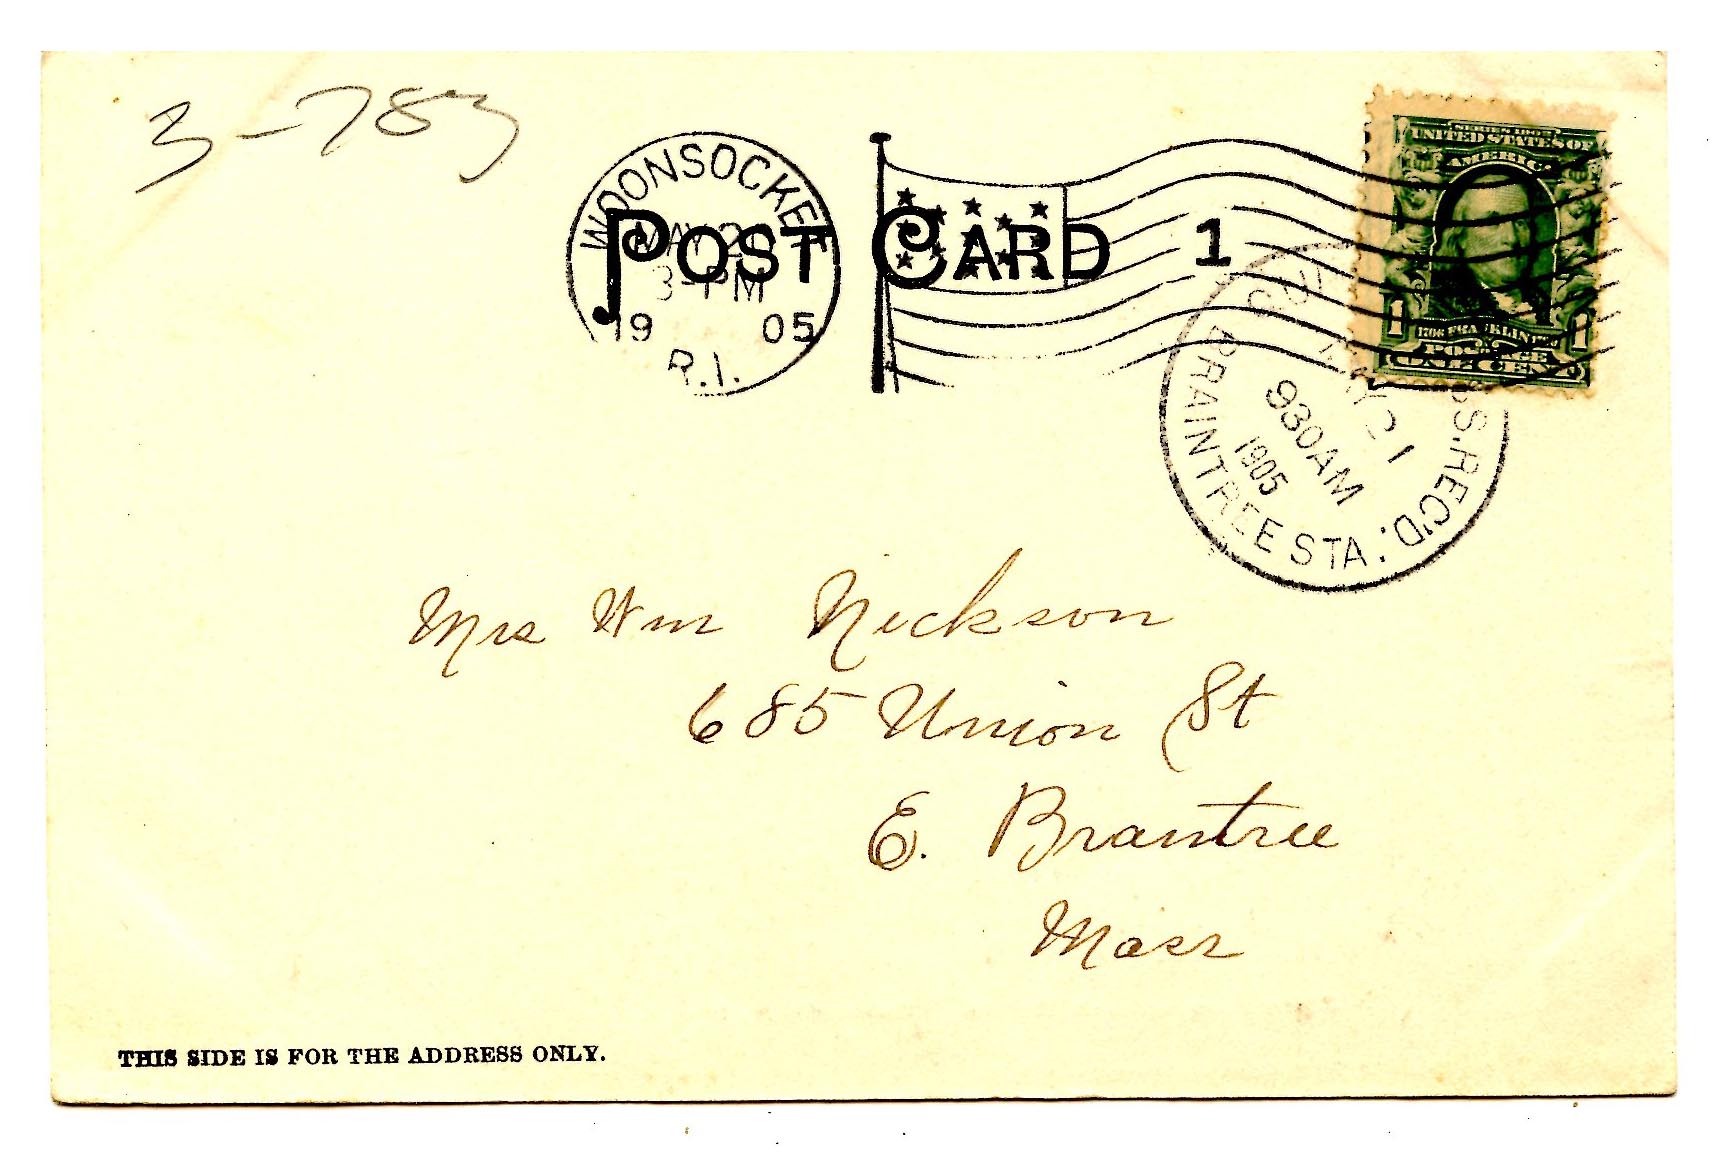 3-783
WOONSOCKET
MAY 2
3-PM
19 05
R.I.
POST CARD
1
SERIES 1902
UNITED STATES OF
AMERICA
1706 FRANKLIN 1790
POSTAGE
1 ONE CENT 1
MASS. REC'D.
MAY 21
930AM
1905
BRAINTREE STA.
Mrs Wm Nickson
685 Union St
E. Braintree
Mass
THIS SIDE IS FOR THE ADDRESS ONLY.